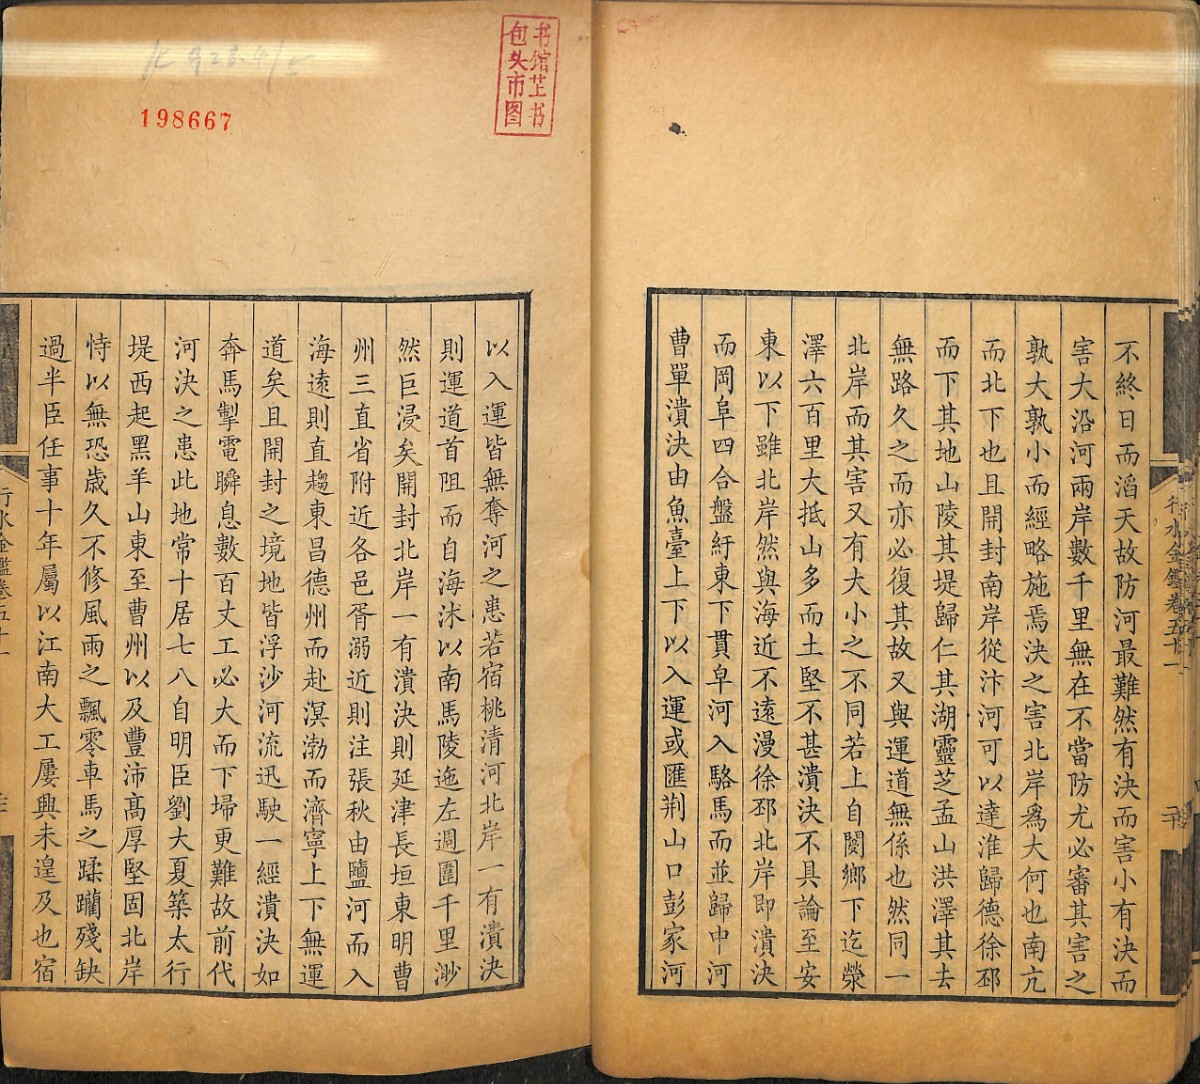 不終日而滔天故防河最難然有決而害小有決而
害大沿河兩岸數千里無在不當防尤必審其害之
孰大孰小而經略施焉決之害北岸爲大何也南亢
而北下也且開封南岸從汴河可以達淮歸德徐邳
而下其地山陵其堤歸仁其湖靈芝孟山洪澤其去
無路久之而亦必復其故又與運道無係也然同一
北岸而其害又有大小之不同若上自閿鄉下迄滎
澤六百里大抵山多而土堅不甚潰決不具論至安
東以下雖北岸然與海近不遠漫徐邳北岸即潰決
而岡阜四合盤紆東下貫皁河入駱馬而並歸中河
曹單潰決由魚臺上下以入運或匯荆山口彭家河
行水金鑑卷五十一
包头市图
书馆芷书
198667
以入運皆無奪河之患若宿桃清河北岸一有潰決
則運道首阻而自海沭以南馬陵迤左週圍千里渺
然巨浸矣開封北岸一有潰決則延津長垣東明曹
州三直省附近各邑胥溺近則注張秋由鹽河而入
海遠則直趨東昌德州而赴溟渤而濟寧上下無運
道矣且開封之境地皆浮沙河流迅駛一經潰決如
奔馬掣電瞬息數百丈工必大而下埽更難故前代
河決之患此地常十居七八自明臣劉大夏築太行
堤西起黑羊山東至曹州以及豐沛高厚堅固北岸
恃以無恐歲久不修風雨之飄零車馬之蹂躪殘缺
過半臣任事十年屬以江南大工屢興未遑及也宿
行水金鑑卷五十一